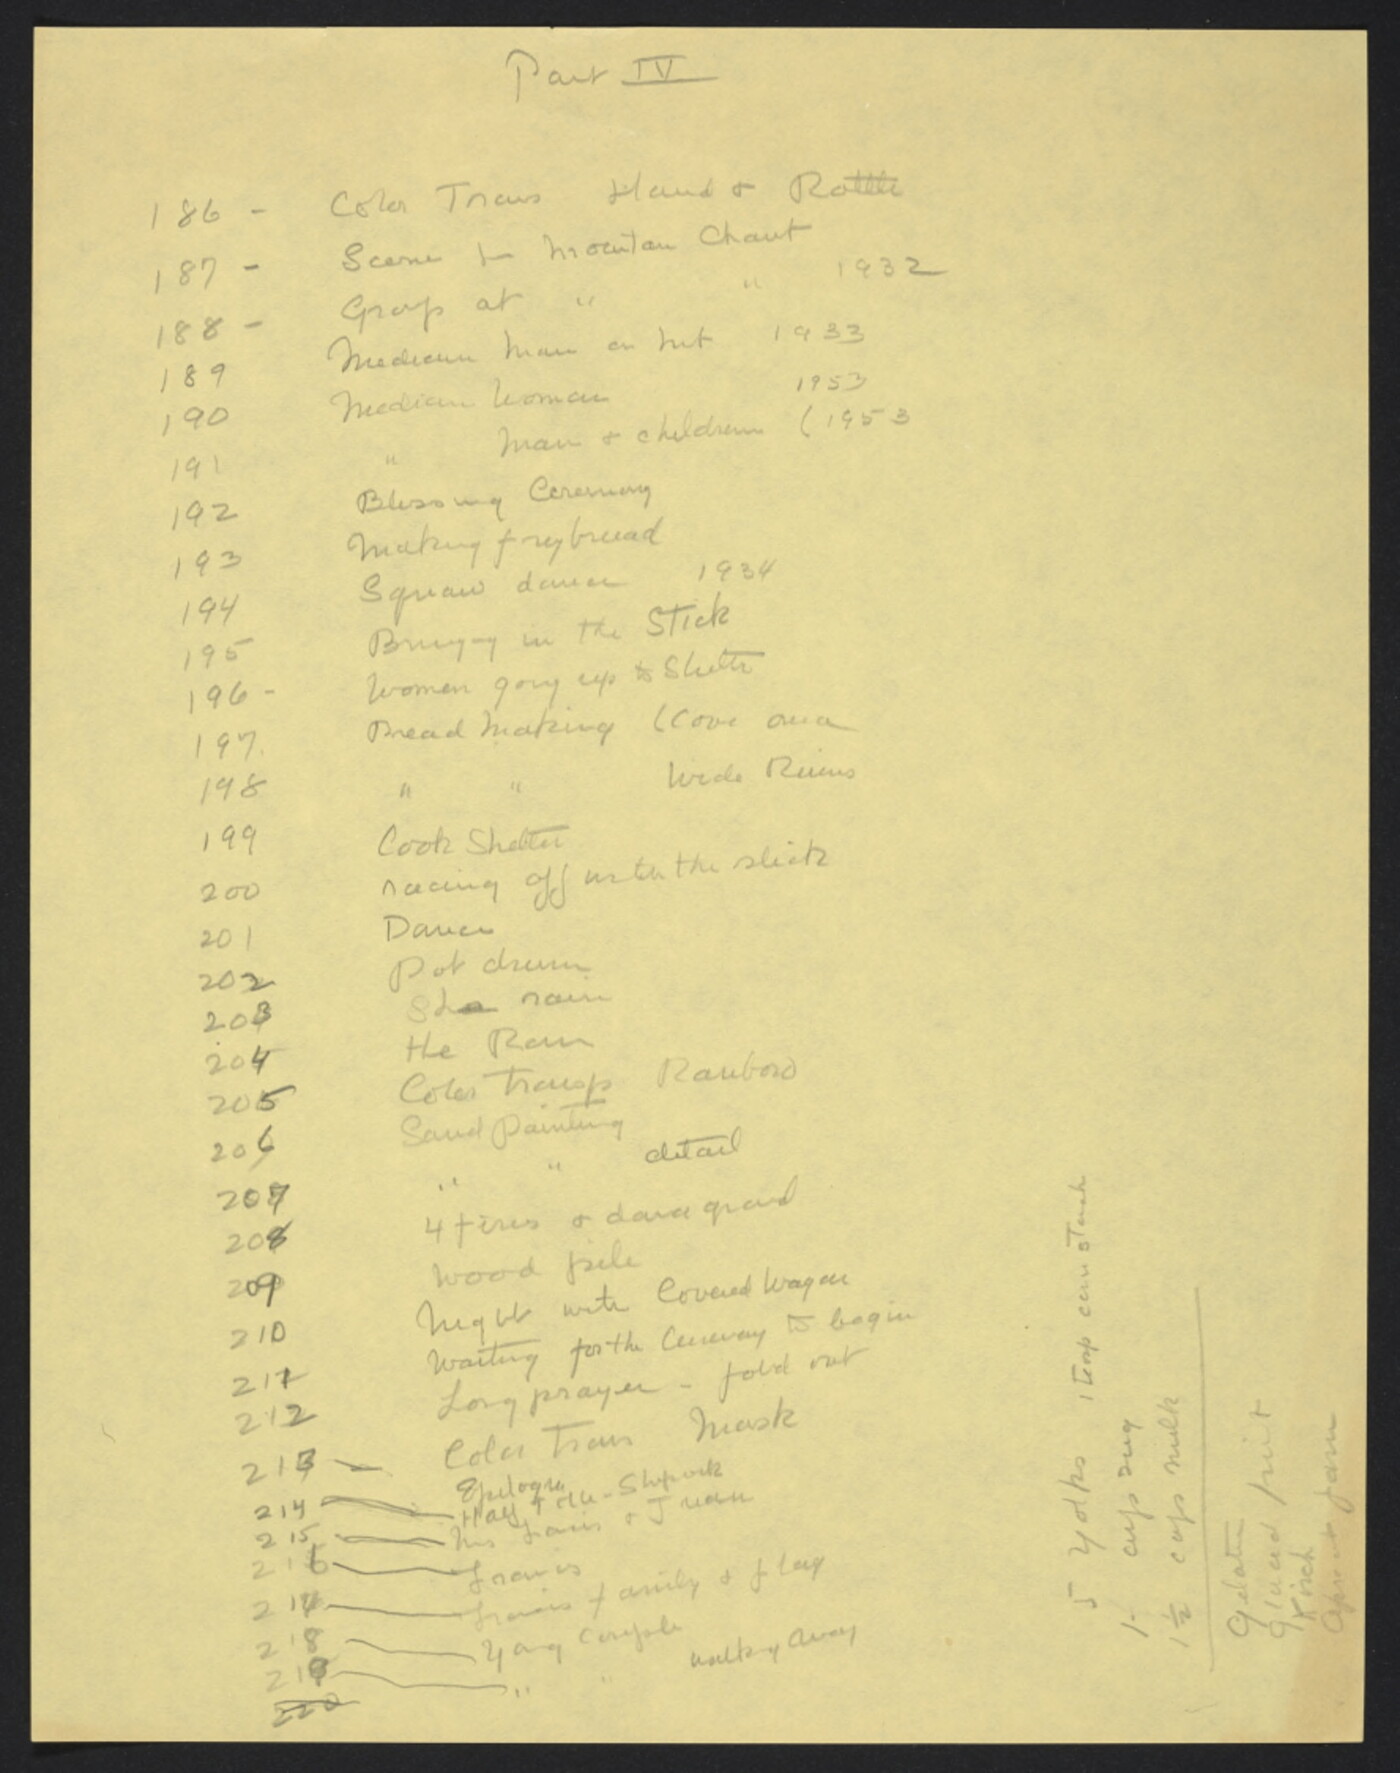 Part IV
186 - Color Trans Hand & Rattle
187 - Scene in Mountan Chant
188 - Group at " " 1932
189 Medicine Man on hut 1933
190 Medicine Woman 1953
191 " Man & children (1953
192 Blessing Ceremony
193 Making frybread
194 Squaw dance 1934
195 Bringing in the Stick
196 - Women going up to Shelter
197. Bread Making (Cove area
198 " " Wide Ruins
199 Cook Shelter
200 racing off with the stick
201 Dance
202 Pot drum
203 She rain
204 the Rain
205 Color Transp Rainbow
206 Sand Painting
207 " " detail
208 4 fires & dance ground
209 Wood pile
210 Night with Covered Wagon
211 Waiting for the Ceremony to begin
212 Long prayer - fold out
213 - Color Trans Mask
Epilogue
214 - Hay + - Shiprock
215 - Mrs Francis & Juan
216 - Francis
217 - Francis family & flag
218 - Yong Couple
219 - " " walking away
220
5 yolks 1 tesp cornstarch
1 - cup sug
1½ cups milk
Gelatin
glacéd fruit
Kirsch
Apricot jam